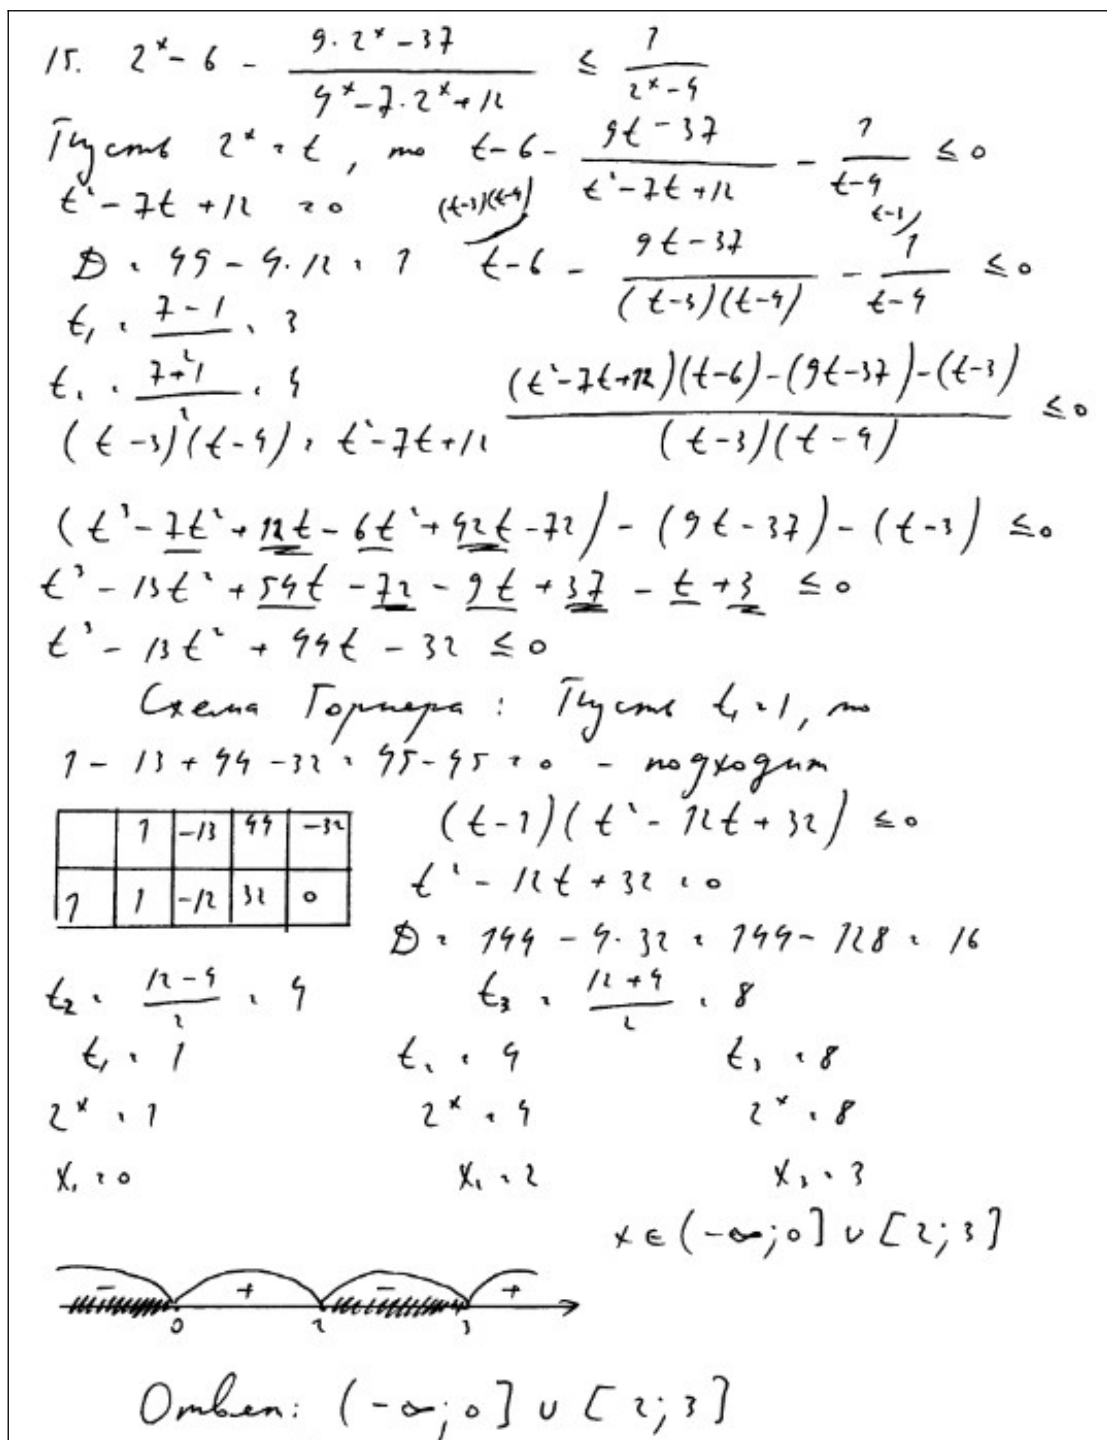 15. 2^x - 6 - (9·2^x - 37)/(4^x - 7·2^x + 12) ≤ 1/(2^x - 4)
Пусть 2^x = t, то t - 6 - (9t - 37)/(t² - 7t + 12) - 1/(t - 4) ≤ 0
t² - 7t + 12 = 0
D = 49 - 4·12 = 1
(t-3)(t-4) t - 6 - (9t - 37)/((t - 3)(t - 4)) - t-3 1/(t - 4) ≤ 0
t₁ = (7 - 1)/2 = 3
t₂ = (7 + 1)/2 = 4
(t - 3)(t - 4) = t² - 7t + 12
((t² - 7t + 12)(t - 6) - (9t - 37) - (t - 3))/((t - 3)(t - 4)) ≤ 0
(t³ - 7t² + 12t - 6t² + 42t - 72) - (9t - 37) - (t - 3) ≤ 0
t³ - 13t² + 54t - 72 - 9t + 37 - t + 3 ≤ 0
t³ - 13t² + 44t - 32 ≤ 0
Схема Горнера: Пусть t₁ = 1, то
1 - 13 + 44 - 32 = 45 - 45 = 0 - подходит
1 -13 44 -32
1 1 -12 32 0
(t - 1)(t² - 12t + 32) ≤ 0
t² - 12t + 32 = 0
D = 144 - 4·32 = 144 - 128 = 16
t₂ = (12 - 4)/2 = 4 t₃ = (12 + 4)/2 = 8
t₁ = 1 t₂ = 4 t₃ = 8
2^x = 1 2^x = 4 2^x = 8
x₁ = 0 x₂ = 2 x₃ = 3
x ∈ (-∞; 0] ∪ [2; 3]
- + - +
0 2 3
Ответ: (-∞; 0] ∪ [2; 3]